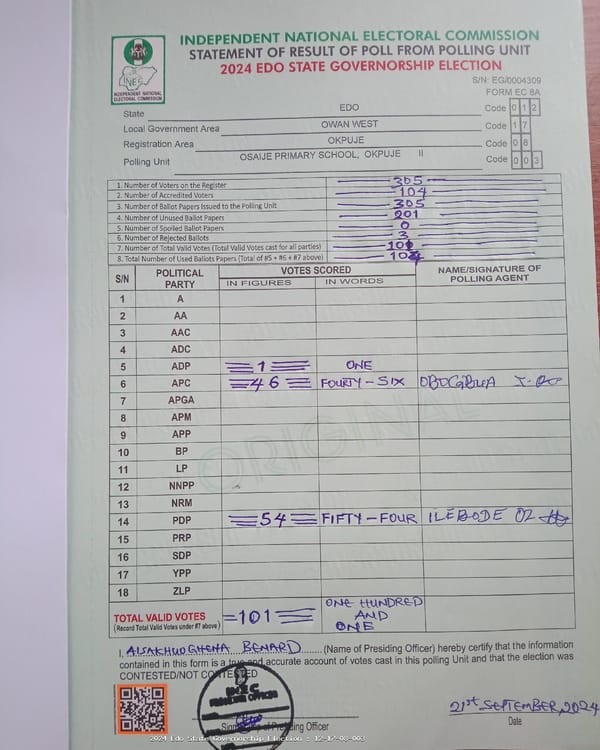 INDEPENDENT NATIONAL ELECTORAL COMMISSION
STATEMENT OF RESULT OF POLL FROM POLLING UNIT
2024 EDO STATE GOVERNORSHIP ELECTION
INEC
INDEPENDENT NATIONAL
ELECTORAL COMMISSION
S/N: EG/0004309
FORM EC 8A
State EDO Code 0 1 2
Local Government Area OWAN WEST Code 1 7
Registration Area OKPUJE Code 0 8
Polling Unit OSAIJE PRIMARY SCHOOL, OKPUJE II Code 0 0 3
1. Number of Voters on the Register 305
2. Number of Accredited Voters 104
3. Number of Ballot Papers Issued to the Polling Unit 305
4. Number of Unused Ballot Papers 201
5. Number of Spoiled Ballot Papers 0
6. Number of Rejected Ballots 3
7. Number of Total Valid Votes (Total Valid Votes cast for all parties) 101
8. Total Number of Used Ballots Papers (Total of #5 + #6 + #7 above) 104
S/N POLITICAL PARTY VOTES SCORED NAME/SIGNATURE OF POLLING AGENT
IN FIGURES IN WORDS
1 A
2 AA
3 AAC
4 ADC
5 ADP 1 ONE
6 APC 46 FOURTY-SIX
7 APGA
8 APM
9 APP
10 BP
11 LP
12 NNPP
13 NRM
14 PDP 54 FIFTY-FOUR ILEBODE OZ
15 PRP
16 SDP
17 YPP
18 ZLP
ORIGINAL
TOTAL VALID VOTES =101= ONE HUNDRED AND ONE
(Record Total Valid Votes under #7 above)
I, BENARD (Name of Presiding Officer) hereby certify that the information
contained in this form is a true and accurate account of votes cast in this polling Unit and that the election was
CONTESTED/NOT CONTESTED
INEC
PRESIDING OFFICER
Signature of Presiding Officer
21st SEPTEMBER, 2024
Date
2024 Edo State Governorship Election : 12-17-08-003